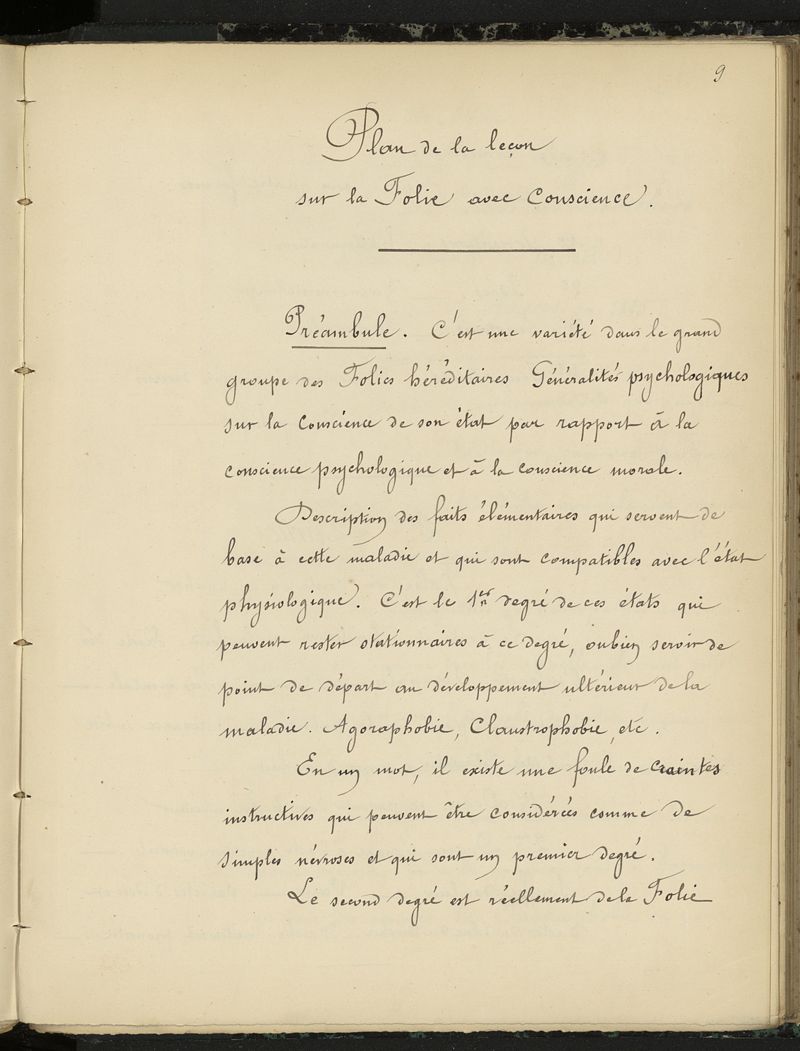 9
Plan de la leçon
sur la Folie avec conscience.
Préambule. C'est une variété dans le grand
groupe des Folies héréditaires Généralités psychologiques
sur la conscience de son état par rapport à la
conscience psychologique et à la conscience morale.
Description des faits élémentaires qui servent de
base à cette maladie et qui sont compatibles avec l'état
physiologique. C'est le 1er degré de ces états qui
peuvent rester stationnaires à ce degré, ou bien servir de
point de départ au développement ultérieur de la
maladie. Agoraphobie, Claustrophobie, etc.
En un mot, il existe une foule de craintes
instructives qui peuvent être considérées comme de
simples névroses et qui sont un premier degré.
Le second degré est réellement de la Folie